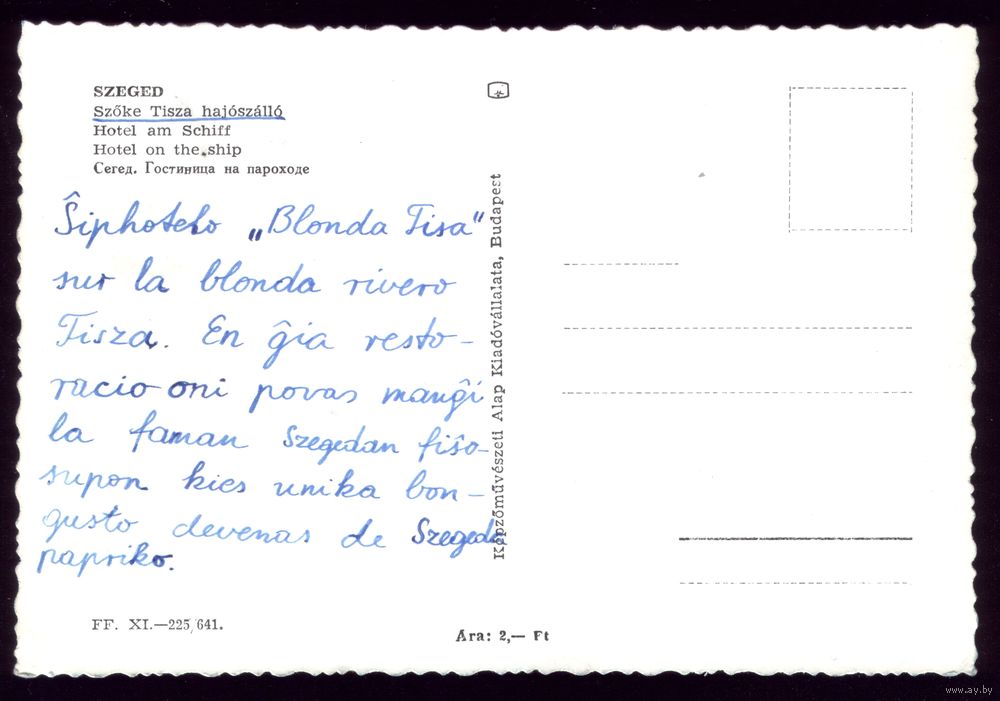 SZEGED
Szőke Tisza hajószálló
Hotel am Schiff
Hotel on the ship
Сегед. Гостиница на пароходе
Ŝiphotelo „Blonda Tisa"
sur la blonda rivero
Tisza. En ĝia resto-
racio oni povas manĝi
la faman Szegedan fiŝo-
supon kies unika bon-
gusto devenas de Szegeda
papriko.
FF. XI.—225/641.
Képzőművészeti Alap Kiadóvállalata, Budapest
Ára: 2,— Ft
www.ay.by